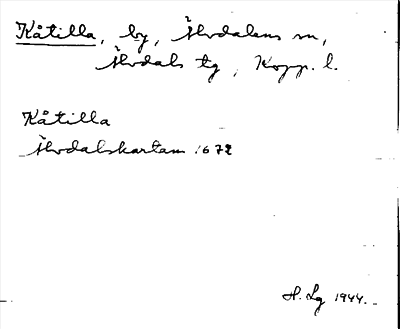 Kåtilla, by, Älvdalens sn,
Älvdals tg, Kopp. l.
Kåtilla
Älvdalskartan 1672
H. Lg 1944.